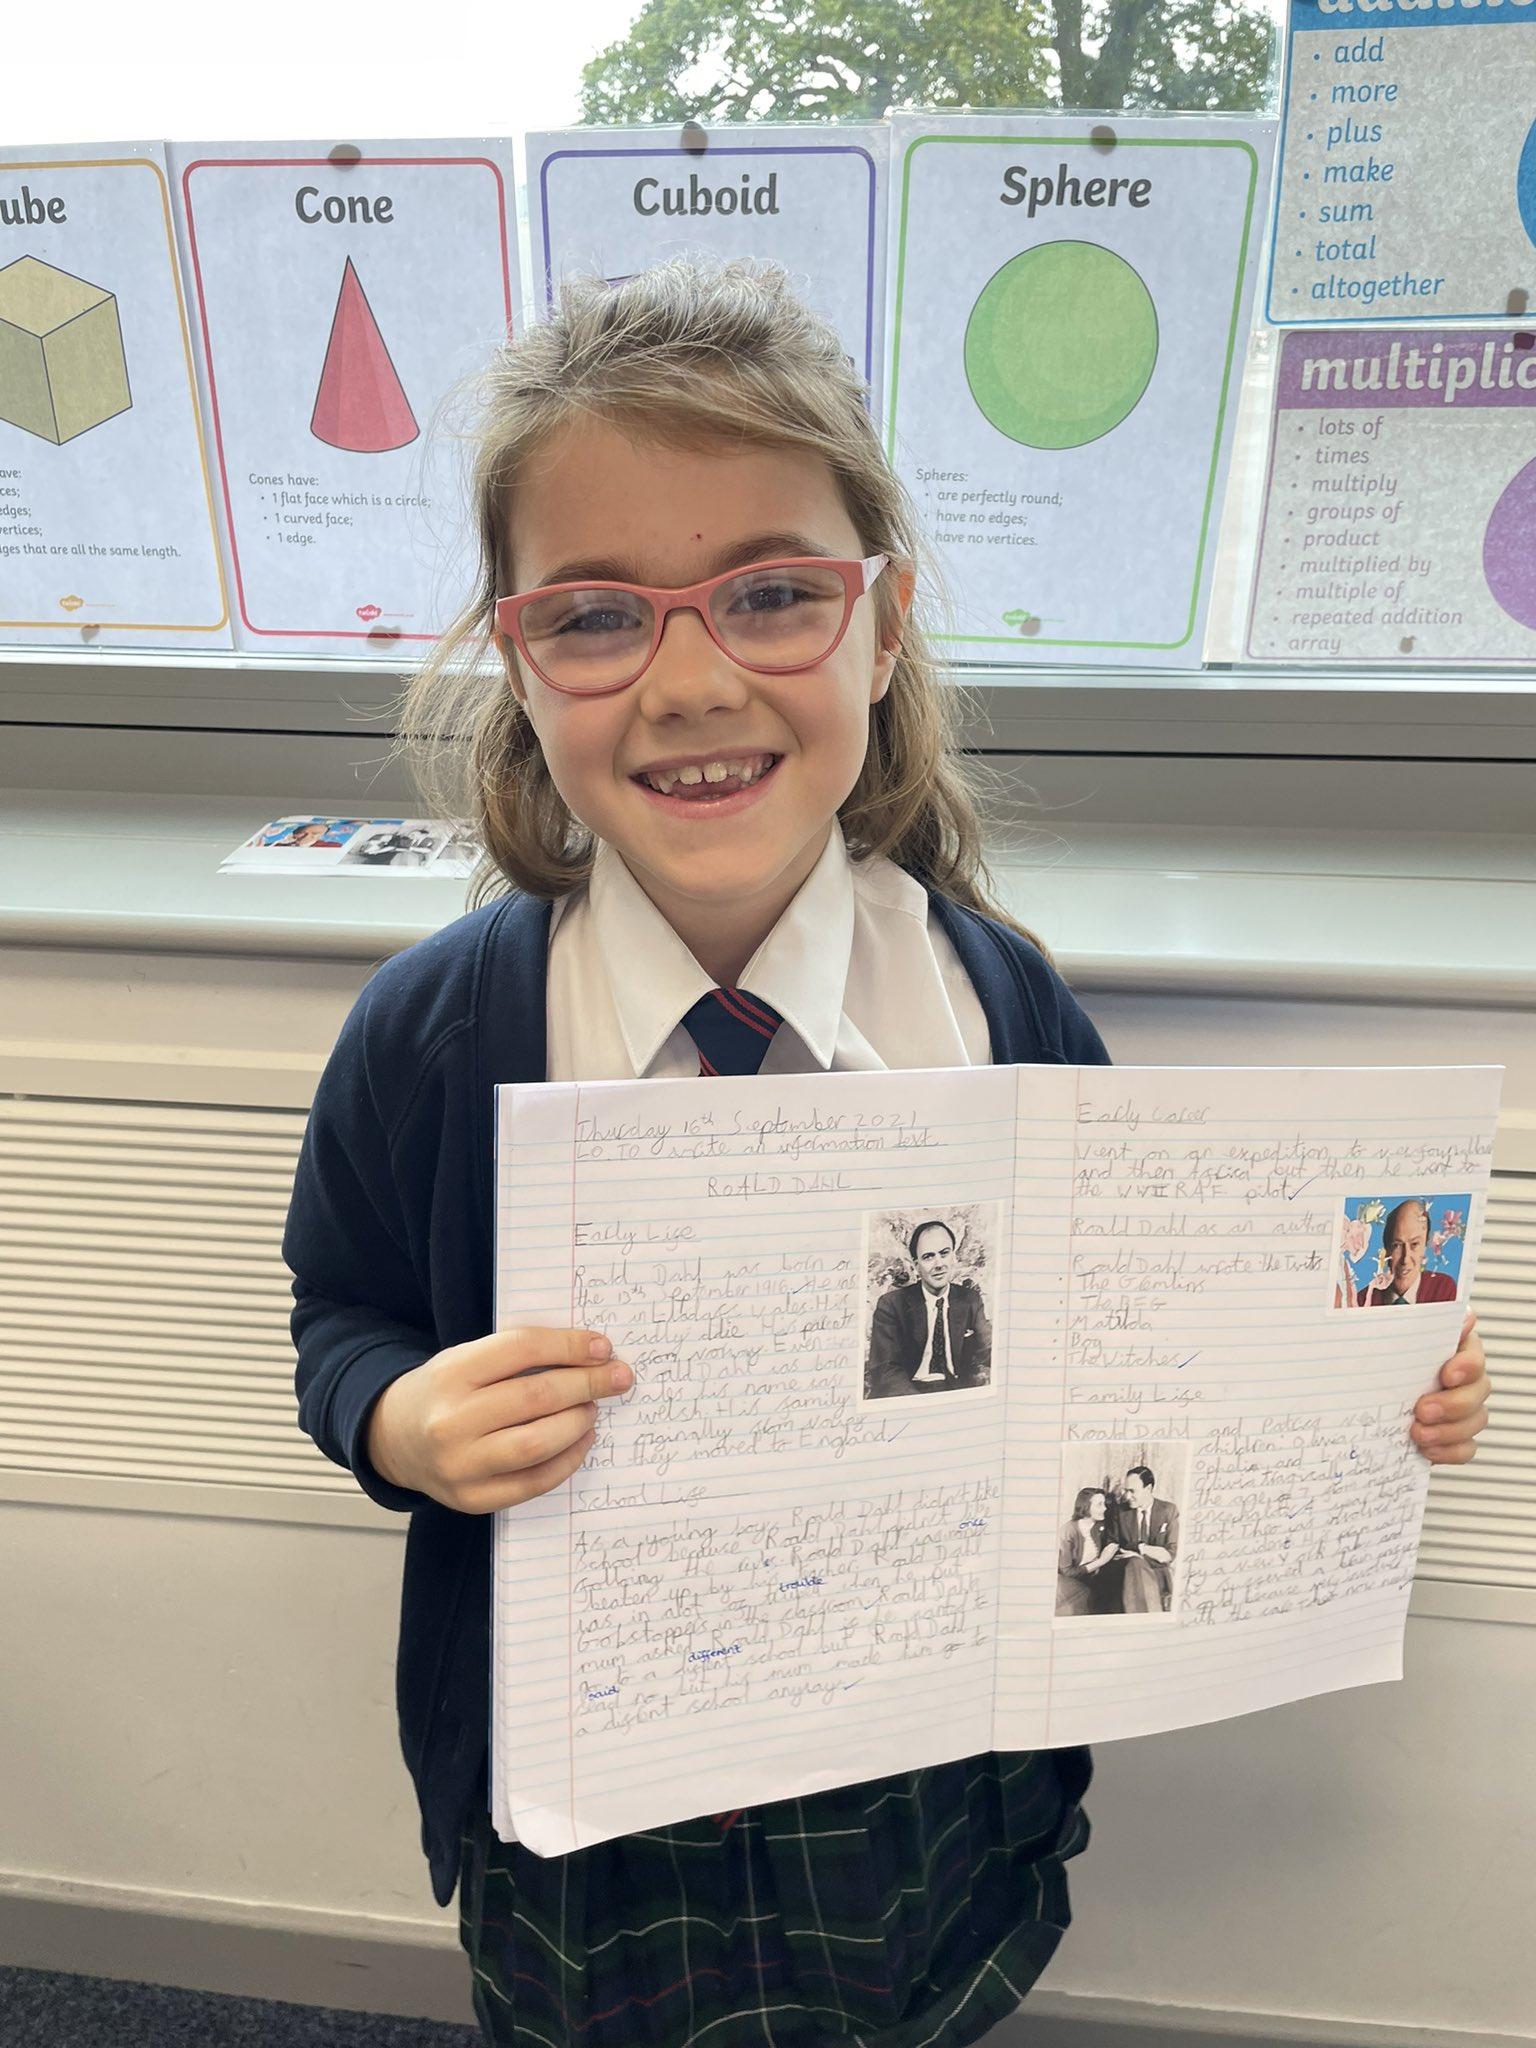 ube
ave:
ces;
edges;
vertices;
dges that are all the same length.
twinkl
Cone
Cones have:
• 1 flat face which is a circle;
• 1 curved face;
• 1 edge.
twinkl
Cuboid
Sphere
Spheres:
• are perfectly round;
• have no edges;
• have no vertices.
twinkl
• add
• more
• plus
• make
• sum
• total
• altogether
multiplic
• lots of
• times
• multiply
• groups of
• product
• multiplied by
• multiple of
• repeated addition
• array
Thursday 16th September 2021
LO. TO write an information text
ROALD DAHL
Early Life
Roald Dahl was born on
the 13th September 1916. He was
born in Wales. His
sadly die. His parents
from norway. Even
Roald Dahl was born
Wales his name was
not welsh. His family
were originally from norway
and they moved to England.
School Life
As a young boy, Roald Dahl didn't like
school because Roald Dahl didn't like
following the rules. Roald Dahl was once
beaten up by his teacher. Roald Dahl
was in alot of trouble when he put
Gobstoppers in the classroom. Roald Dahls
mum asked Roald Dahl if he wanted to
go to a different school but Roald Dahl
said no but his mum made him go to
a school anyway.
Early Career
Went on an expedition to
and then Africa but then he went to
the WWII R.A.F. pilot
Roald Dahl as an author
Roald Dahl wrote: the Twits
• The Gremlins
• The BFG
• Matilda
• Boy
• The Witches
Family Life
Roald Dahl and Neal
children: Olivia, Tessa,
Ophelia and Lucy.
Olivia tragically died at
the age of 7 from measles
encephalitis. A year before
that Theo was involved in
an accident. His pram was hit
by a new york taxi and
he suffered a brain
Roald became very involved
with the care Theo now